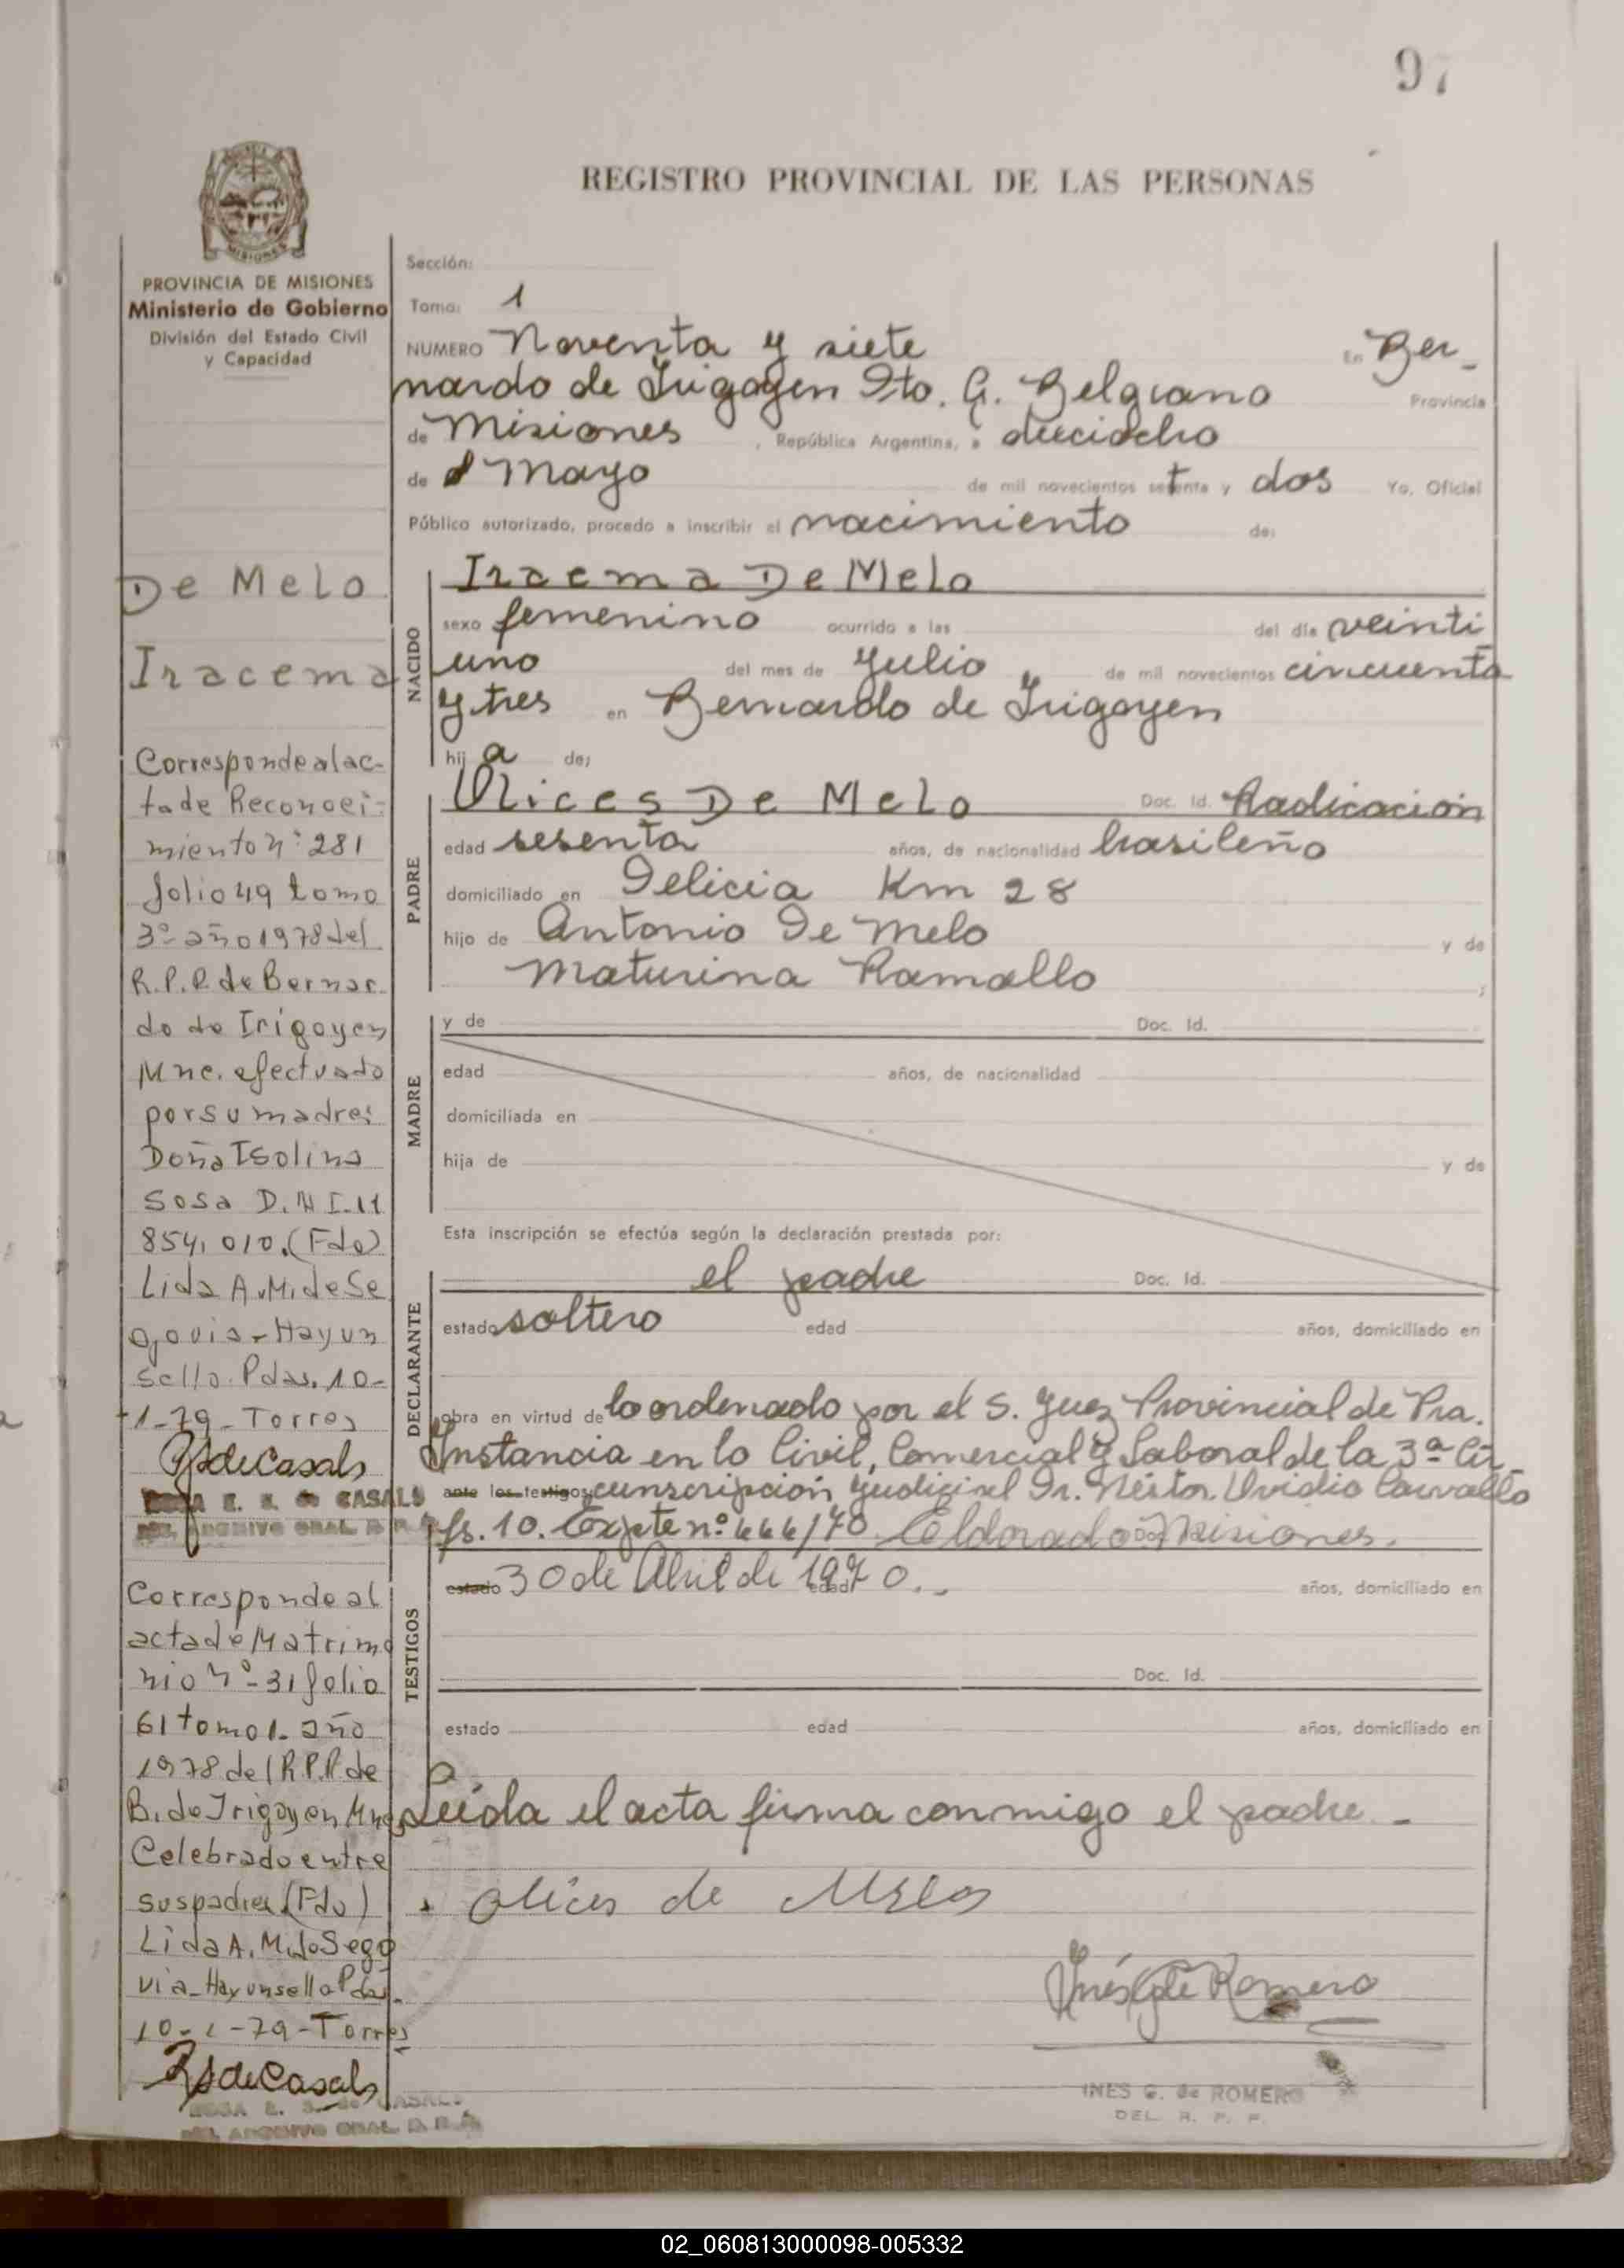 97
REGISTRO PROVINCIAL DE LAS PERSONAS
MISIONES
PROVINCIA DE MISIONES
Ministerio de Gobierno
División del Estado Civil
y Capacidad
De Melo
Iracema
Corresponde al ac-
ta de Reconoci-
miento nº 281
folio 49 tomo
3º año 1978 del
R.P.P. de Bernar
do de Irigoyen
Mnes. efectuado
por su madre:
Doña Isolina
Sosa D.N I-11
854,010.(Fdo)
Lida A.M. de Se
govia-Hay un
sello. Pdas. 10-
1-79-Torres
RSdeCasals
ROSA E. S. de CASALS
ARCHIVO GRAL R. P. P.
Corresponde al
acta de Matrimo
nio nº-31 folio
61 tomo 1- año
1978 del R.P.P. de
B. de Irigoyen, Mnes
Celebrado entre
sus padres (Fdo)
Lida A. M. de Sego
via-Hay un sello Pdas.
10-1-79-Torres
RSdeCasals
ROSA E. S. de CASALS
ARCHIVO GRAL. R. P. P.
Sección:
Tomo: 1
NUMERO Noventa y siete En Ber-
nardo de Irigoyen Dto. G. Belgrano Provincia
de Misiones , República Argentina, a dieciocho
de Mayo de mil novecientos setenta y dos Yo, Oficial
Público autorizado, procedo a inscribir el nacimiento de:
NACIDO
Iracema De Melo
sexo femenino ocurrido a las del día veinti
uno del mes de Julio de mil novecientos cincuenta
y tres en Bernardo de Irigoyen
hij a de;
PADRE
Olices De Melo Doc. Id. Radicación
edad sesenta años, de nacionalidad brasileño
domiciliado en Delicia Km 28
hijo de Antonio De Melo y de
Maturina Ramallo ;
MADRE
y de Doc. Id.
edad años, de nacionalidad
domiciliada en
hija de y de
Esta inscripción se efectúa según la declaración prestada por:
DECLARANTE
el padre Doc. Id.
estado soltero edad años, domiciliado en
obra en virtud de lo ordenado por el S. Juez Provincial de Pra.
Instancia en lo Civil, Comercial y Laboral de la 3ª Cir-
ante los testigos; cunscripción Judicial Dr. Néstor Ovidio Carvallo
fs. 10. Expte nº 666/70 Eldorado Misiones.
TESTIGOS
estado 30 de Abril de 1970.- edad años, domiciliado en
Doc. Id.
estado edad años, domiciliado en
Leida el acta firma conmigo el padre.-
Olices de Melos
Inés G de Romero
INES G. de ROMERO
DEL. R. P. P.
02_060813000098-005332